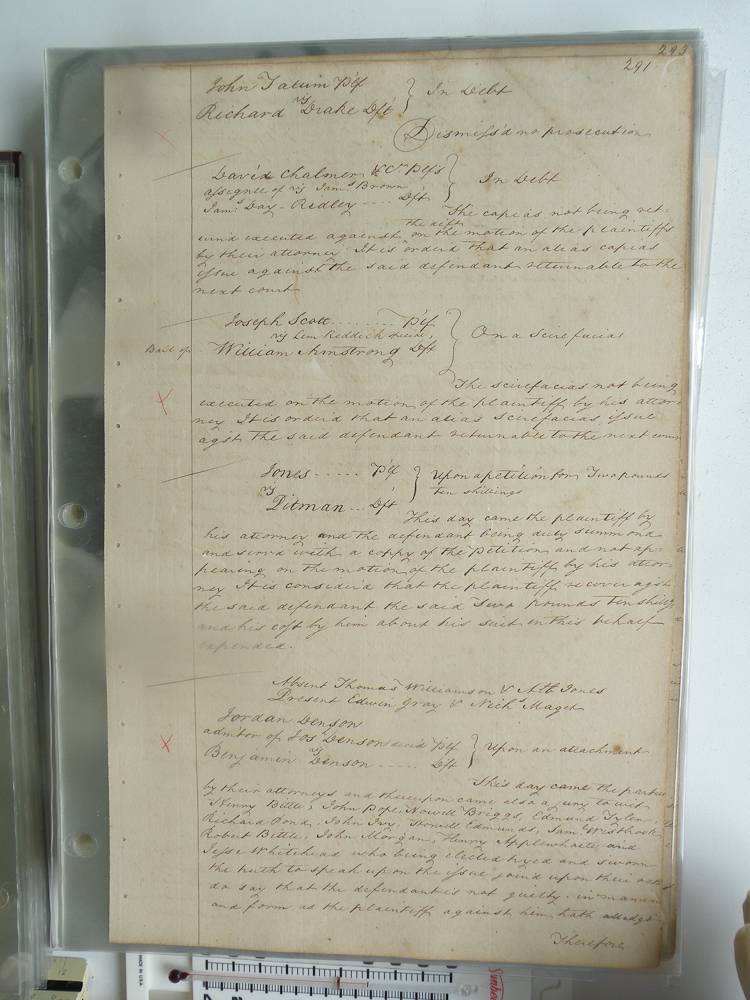 293
291
John Tatum Plf
vs
Richard Drake Dft
In Debt
Dismiss'd no prosecution
David Chalmers & Co Plfs
assignee of vs Jams Brown
Jams Day-Ridley .... Dft
In Debt
The capias not being ret-
urn'd executed against the deft on the motion of the plaintiffs
by their attorney It is order'd that an alias capias
issue against the said defendant returnable to the
next court
Joseph Scott ......... Plf
vs Lem Reddick
Bail of William Armstrong Dft
On a Scirefacias
The scirefacias not being
executed on the motion of the plaintiff by his attor-
ney It is order'd that an alias scirefacias issue
agst the said defendant returnable to the next court
Jones ..... Plf
vs
Pitman ... Dft
Upon a petition for Two pounds
ten shillings
This day came the plaintiff by
his attorney and the defendant being duly summond
and serv'd with a coppy of the petition and not ap-
pearing on the motion of the plaintiff by his attor-
ney It is consider'd that the plaintiff recover agst
the said defendant the said Two pounds ten shillgs
and his cost by him about his suit in this behalf
expended.
Absent Thomas Williamson & Alb Jones
Present Edwin Gray & Nichs Maget
Jordan Denson
admitor of Jos Denson decd Plf
vs
Benjamin Denson ..... Dft
Upon an attachment
This day came the parties
by their attorneys and thereupon came also a jury to wit
Henry Bittle, John Pope, Howell Briggs, Edmund Tyler,
Richard Pond, John Ivy, Howell Edmunds, Sam Westbrook,
Robert Bittle, John Morgan, Henry Applewhaite, and
Jesse Whitehead who being elected tryed and sworn
the truth to speak upon the issue join'd upon their oath
do say that the defendant is not guilty in manner
and form as the plaintiff against him hath alledg'd
Therefore
MADE IN U.S.A.